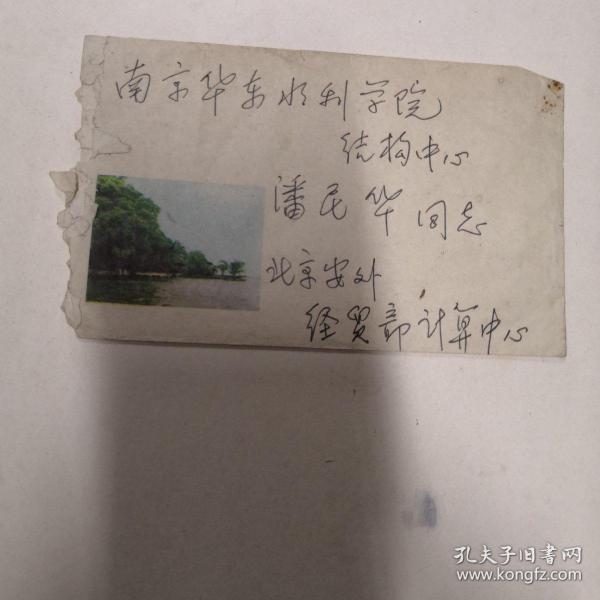 南京华东水利学院
结构中心
潘民华同志
北京安外
经贸部计算中心
孔夫子旧书网
www.kongfz.com